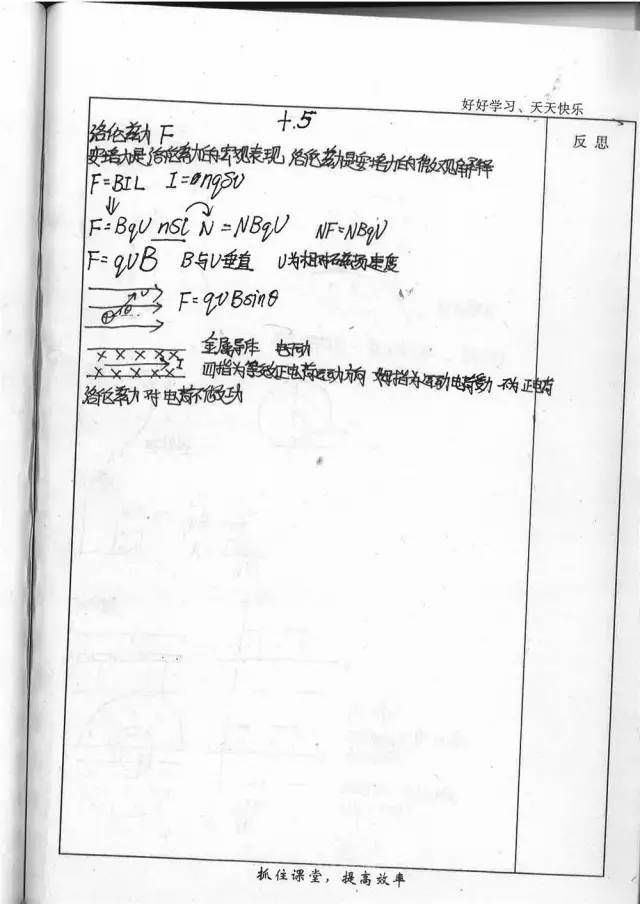 好好学习、天天快乐
反思
十.5
洛伦兹力 F
安培力是洛伦兹力的宏观表现 洛伦兹力是安培力的微观解释
F=BIL I=nqSv
F=Bqv nSl N=NBqv NF=NBqv
F=qvB B与v垂直 v为相对磁场速度
v
θ F=qvBsinθ
金属导体 电子动
× × × × × I 四指为等效正电荷运动方向 拇指为运动电荷受力
× × × × ×
洛伦兹力对电荷不做功
抓住课堂，提高效率